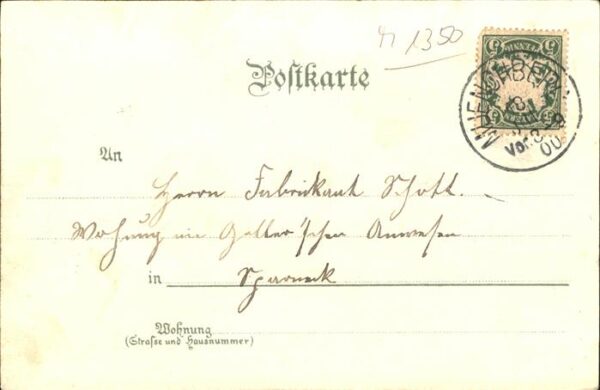 n 1350
Postkarte
MUENCHBERG
8
Vor. 8-9
00
An
Herrn Fabrikant Schott.
Wohnung im Galler'schen Anwesen
in Sparneck
Wohnung
(Strasse und Hausnummer)